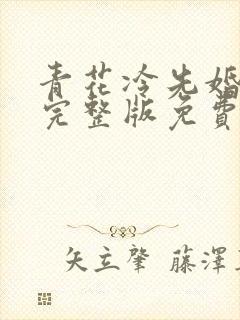 青花冷先婚
完整版免費
矢立肇 藤澤